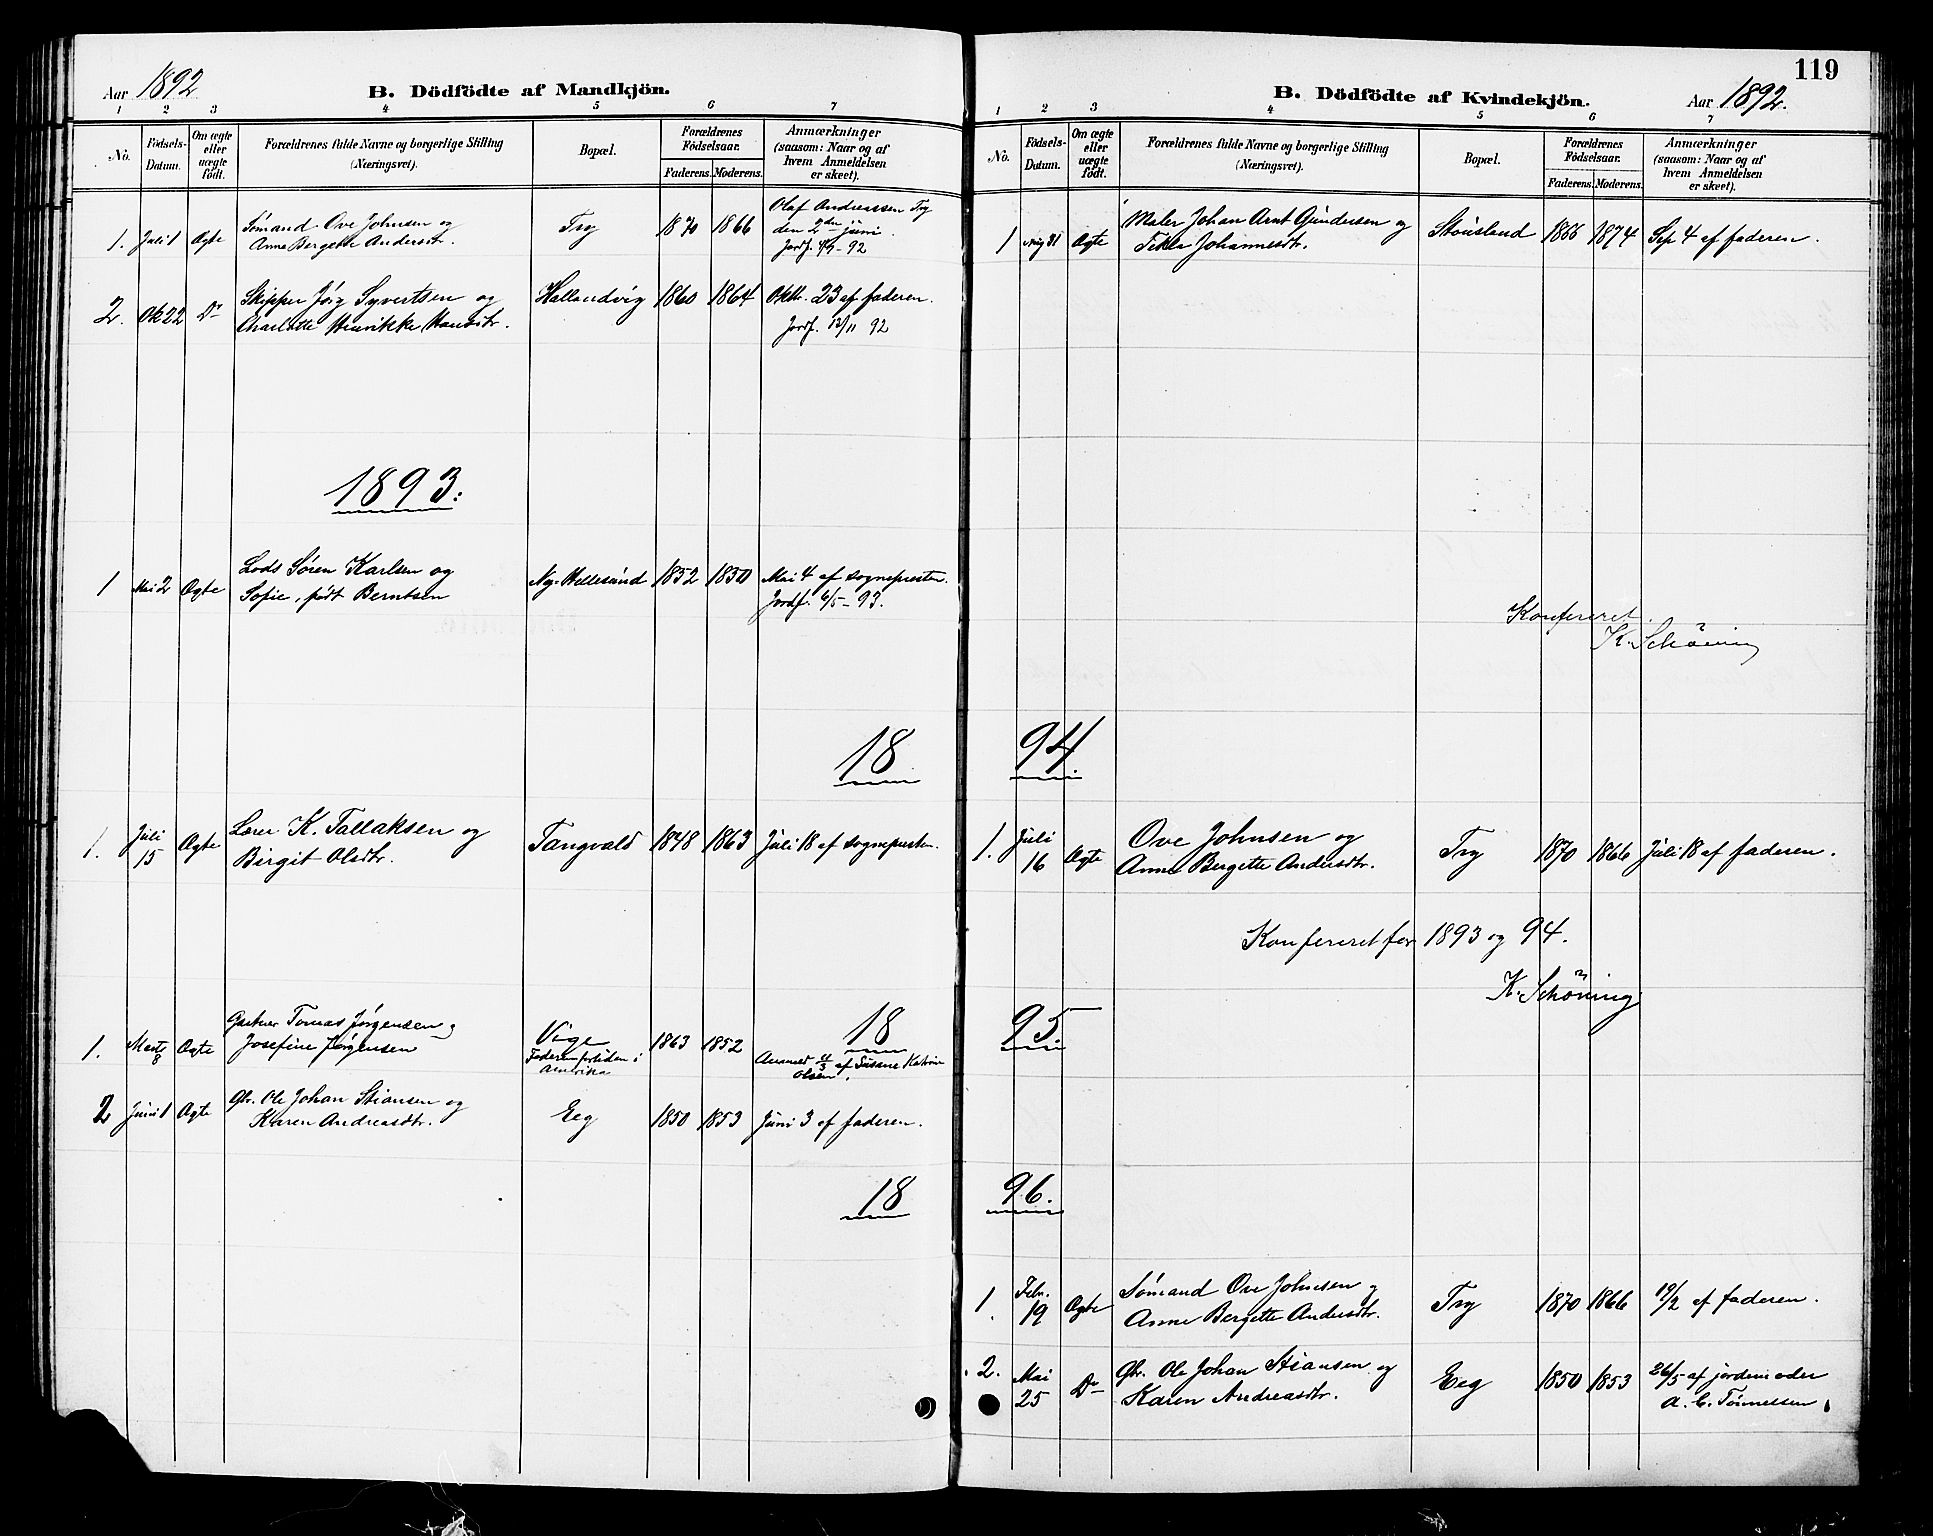 Aar 1892
B. Dödfödte af Mandkjön.
1 2 3 4 5 6 7
No.
Födsels-
Datum.
Om ægte
eller
uægte
födt.
Forældrenes fulde Navne og borgerlige Stilling
(Næringsvei).
Bopæl.
Forældrenes
Födselsaar.
Faderens. Moderens.
Anmærkninger
(saasom: Naar og af
hvem Anmeldelsen
er skeet).
1. Juli 1 Ægte Sømand Ove Johnsen og Try 1870 1866 Olaf Andreassen Try
Anne Bergette Andersdtr. den 2den juni
Jordf. 4/7-92
2. Ok 22 Do Skipper Jørg Syvertsen og Hallandvig 1860 1864 Oktbr. 23 af faderen.
Charlotte Henrikke Hansdtr. Jordf. 12/11 92
1893.
1 Mai 2 Ægte Lods Søren Karlsen og Ny-Hellesund 1852 1850 Mai 4 af sognepresten.
Sofie, født Berntsen Jordf. 6/5-93.
18
1. Juli 15 Ægte Lærer K. Tallaksen og Tangvald 1848 1863 Juli 18 af sognepresten.
Birgit Olsdtr.
18
1. Marts 8 Ægte Gartner Tomas Jørgensen og Vige 1863 1852
Josefine Jørgensen Faderen fortiden i Anmeldt 11/3 af Susane Katrine
Amerika Olsen.
2 Juni 1 Ægte Gbr. Ole Johan Stiansen og Eeg 1850 1853 Juni 3 af faderen.
Karen Andreasdtr.
18
119
B. Dödfödte af Kvindekjön.
Aar 1892.
1 2 3 4 5 6 7
No.
Födsels-
Datum.
Om ægte
eller
uægte
födt.
Forældrenes fulde Navne og borgerlige Stilling
(Næringsvei).
Bopæl.
Forældrenes
Födselsaar.
Faderens. Moderens.
Anmærkninger
(saasom: Naar og af
hvem Anmeldelsen
er skeet).
1 Aug 31 Ægte Maler Johan Arnt Gundersen og Stousland 1866 1874 Sep 4 af faderen.
Tekla Johannesdtr.
Konfereret.
K. Schöning
94.
1. Juli 16 Ægte Ove Johnsen og Try 1870 1866 Juli 18 af faderen.
Anne Bergette Andersdtr.
Konfereret for 1893 og 94.
K. Schöning
95.
96.
1. Febr. 19 Ægte Sømand Ove Johnsen og Try 1870 1866 19/2 af faderen.
Anne Bergette Andersdtr.
2. Mai 25 Do Gbr. Ole Johan Stiansen og Eeg 1850 1853 26/5 af jordemoder
Karen Andreasdtr. A. C. Tønnessen